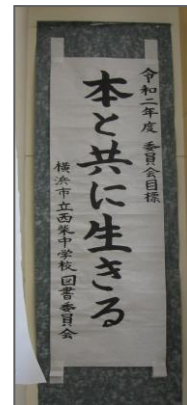 令和二年度 委員会目標
本と共に生きる
横浜市立西柴中学校図書委員会